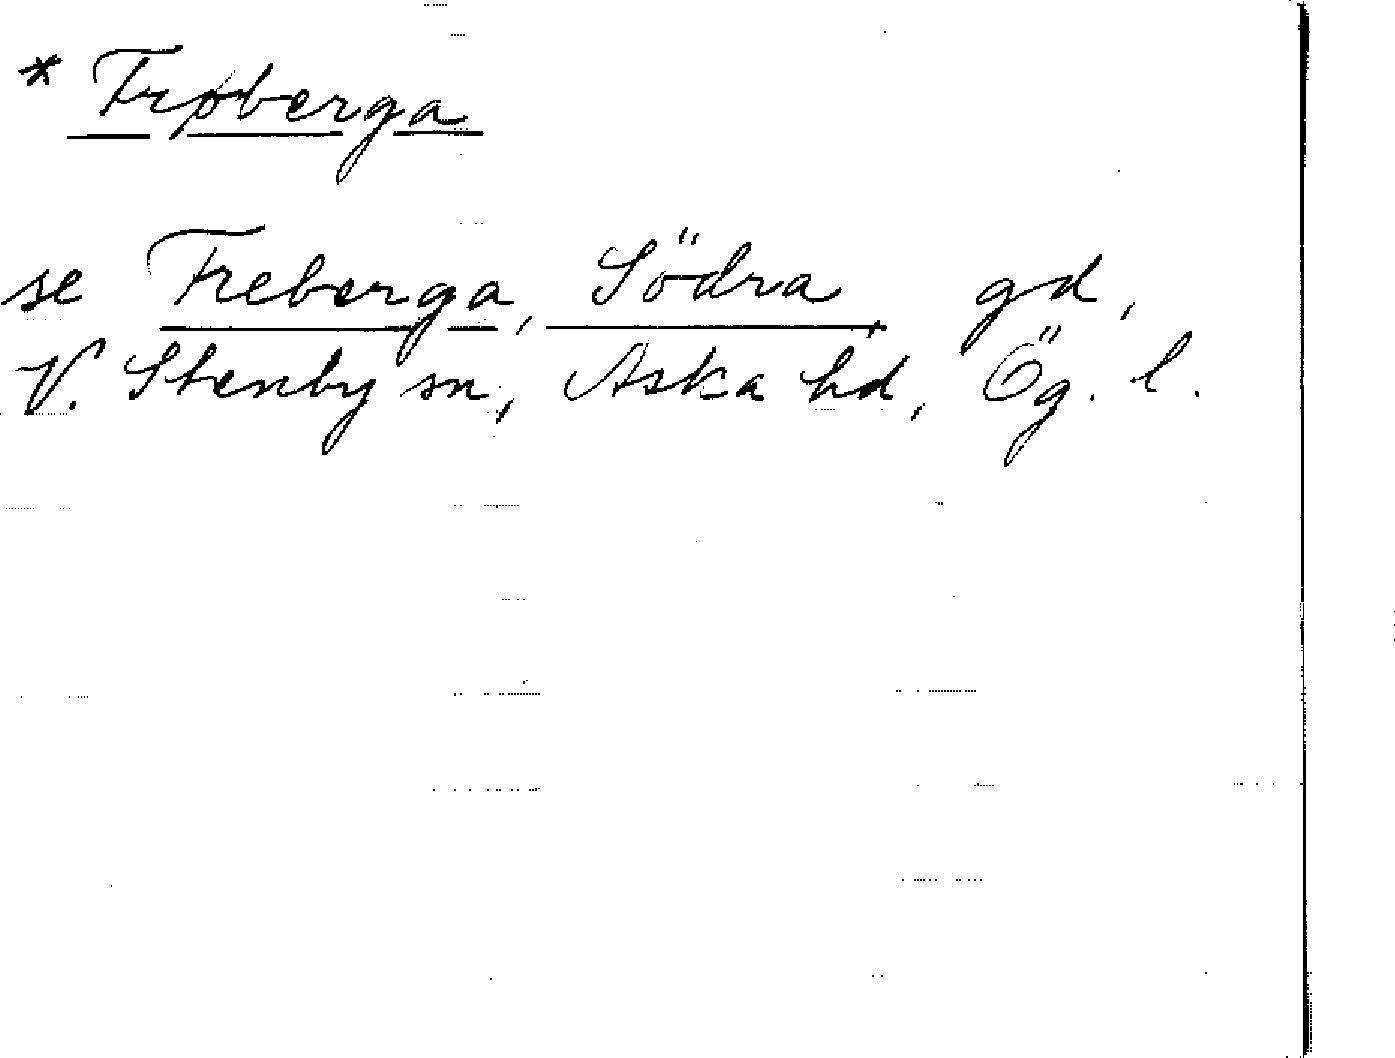 * Frøberga
se Freberga, Södra, gd,
V. Stenby sn, Aska hd, Ög. l.